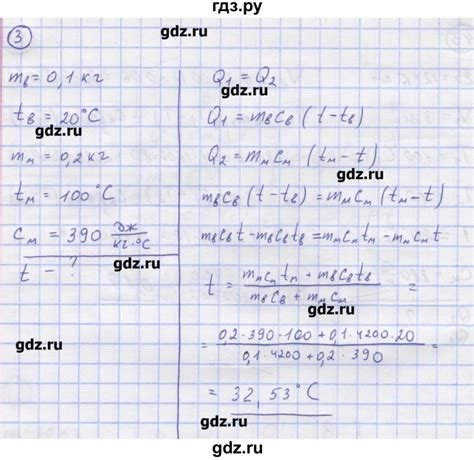 гдз.ру
3
gdz.ru gdz.ru
mв = 0,1 кг
tв = 20°C
gdz.ru
mм = 0,2 кг
tм = 100°C
cм = 390 Дж/кг·°C
t - ?
gdz.ru
Q₁ = Q₂
gdz.ru
Q₁ = mвcв (t - tв)
Q₂ = mмcм (tм - t)
gdz.ru
mвcв (t - tв) = mмcм (tм - t)
mвcвt - mвcвtв = mмcмtм - mмcмt
gdz.ru
t = (mмcмtм + mвcвtв) / (mвcв + mмcм) =
= (0,2·390·100 + 0,1·4200·20) / (0,1·4200 + 0,2·390) =
gdz.ru gdz.ru
= 32,53°C
gdz.ru